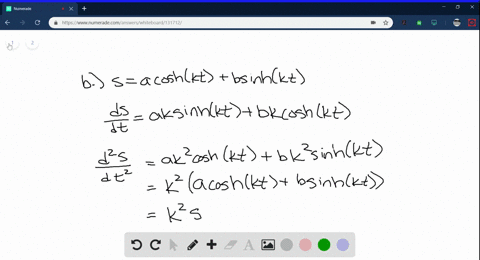 Numerade
https://www.numerade.com/answers/whiteboard/131712/
b.) s = a cosh(kt) + b sinh(kt)
ds/dt = ak sinh(kt) + bk cosh(kt)
d²s/dt² = ak² cosh(kt) + bk² sinh(kt)
= k² (a cosh(kt) + b sinh(kt))
= k² s